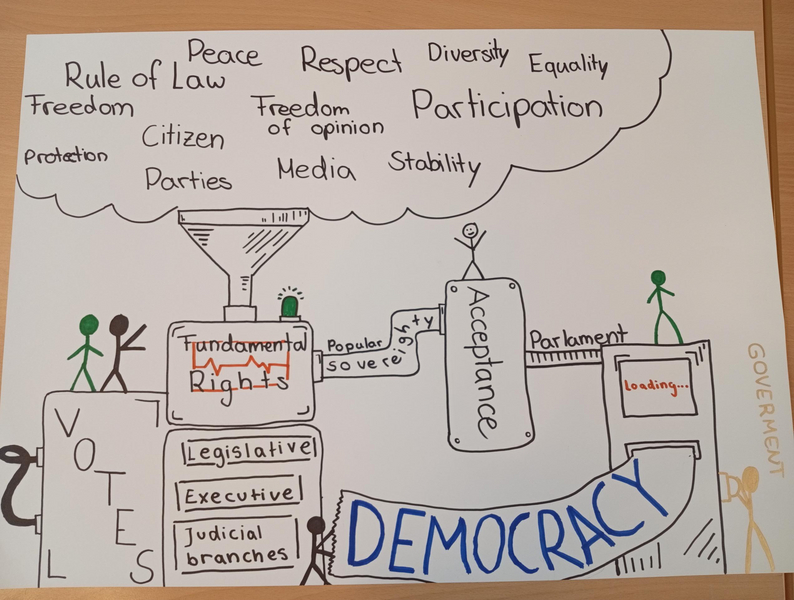 Peace
Respect
Diversity
Equality
Rule of Law
Freedom
Freedom
of opinion
Participation
Citizen
Protection
Parties
Media
Stability
Fundamental
Rights
Popular
sovereighty
Acceptance
Parlament
Loading...
GOVERMENT
VOTES
L
Legislative
Executive
Judicial
branches
DEMOCRACY